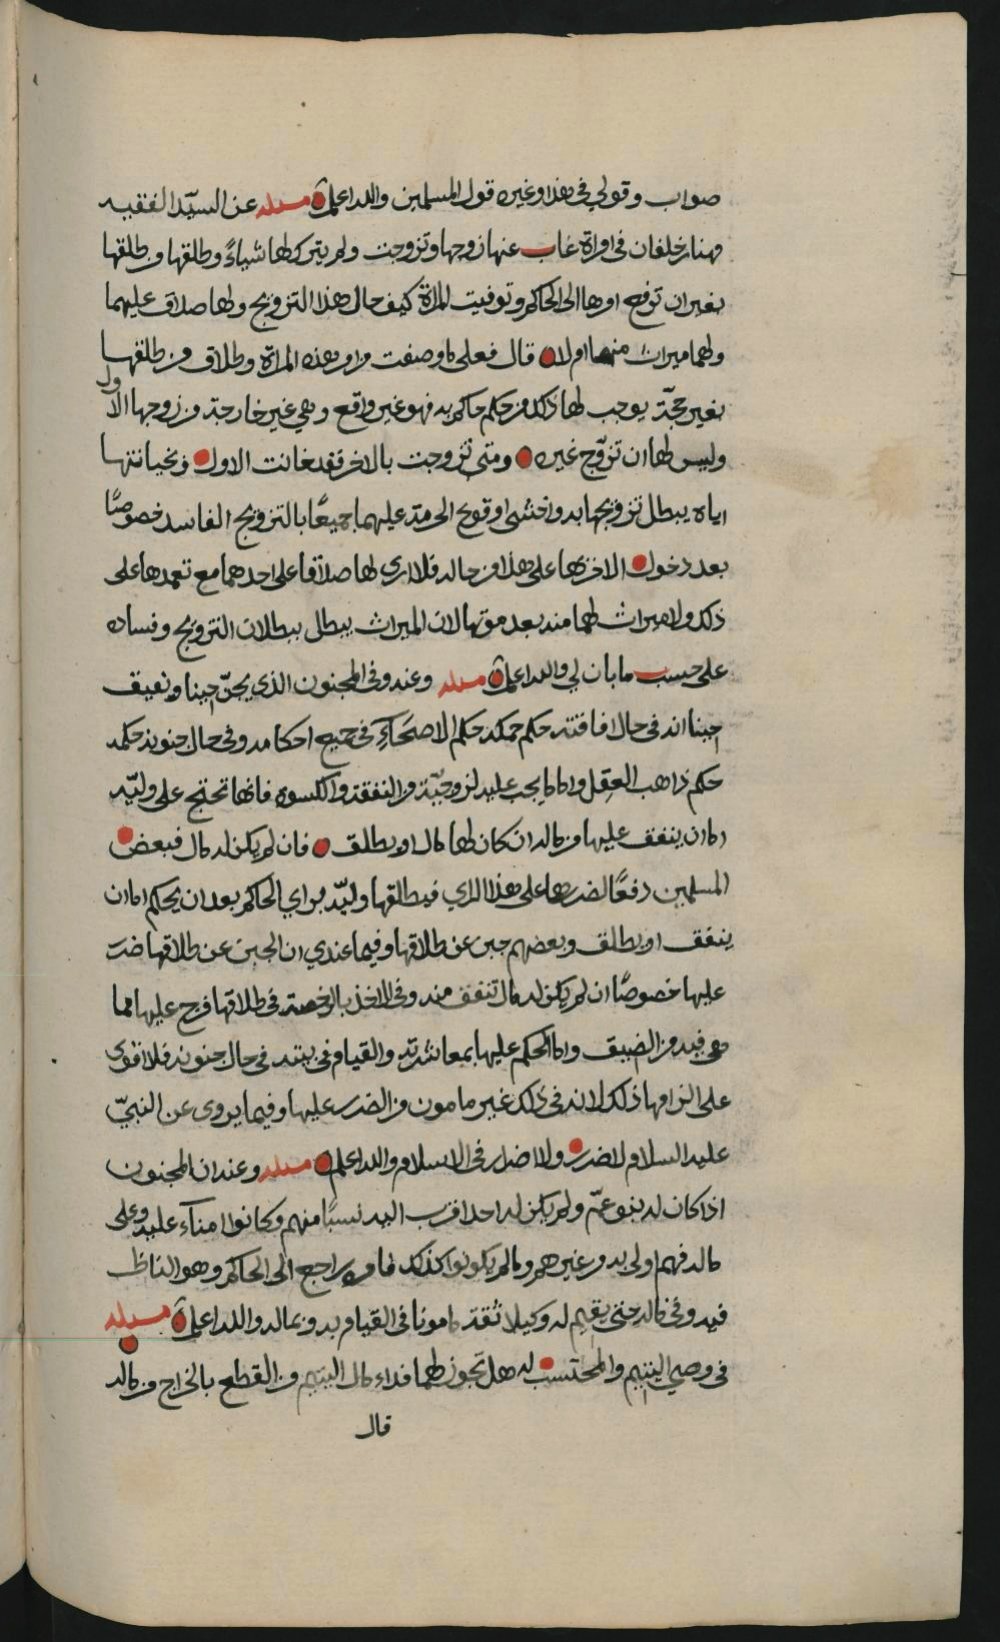 صواب وقولي في هذا وغيره قول المسلمين والله اعلم مسئله عن السيّد الفقيه
مهنا بن خلفان في امراة غاب عنها زوجها وتزوجت ولم يترك لها شياءً وطلقها من طلقها
بغير ان ترفع امرها الى الحاكم وتوفيت المراة كيف حال هذا التزويج ولها صداق عليهما
ولهما ميراث منها ام لا قال فعلى ما وصفت من امر هذه المراة وطلاق من طلقها
بغير حجّة يوجب لها ذلك من حكم حاكم به فهو غير واقع وهي غير خارجة من زوجها الاول
وليس لها ان تزوّج غيره ومتى تزوجت بالاخر فقد خانت الاول وبخيانتها
اياه يبطل تزويجها به واخشى وقوع الحرمة عليهما جميعًا بالتزويج الفاسد خصوصًا
بعد دخول الاخر بها على هذا من حاله فلا ارى لها صداقا على احدهما مع تعمدها على
ذلك ولا ميراث لهما منه بعد موتها لان الميراث يبطل ببطلان التزويج وفساده
على حسب ما بان لي والله اعلم مسئله وعنه وفي المجنون الذي يجنّ حينا ويفيق
حينا انه في حال افاقته حكم حكمه حكم الاصحَاءِ في جميع احكامه وفي حال جنونه حكمه
حكم ذاهب العقل واما ما يجب عليه لزوجيّة من النفقة والكسوه فانها تحتج على وليّه
اما ان ينفق عليها من ماله ان كان لها مال او يطلق فان لم يكن له مال فبعض
المسلمين دفعًا لضررها على هذا الراي فيطلقها وليّه براي الحاكم بعد ان يحكم اما ان
ينفق او يطلق وبعضهم جبن عن طلاقها وفيما عندي ان الجبن عن طلاقها ضرر
عليها خصوصًا ان لم يكن له مال تنفق منه وفي الاخذ بالرخصة في طلاقها فرج عليها مما
هي فيه من الضيق واما الحكم عليها بمعاشرته والقيام في بيته في حال جنونه فلا اقوى
على الزامها ذلك لانه في ذلك غير مامون من الضرر عليها وفيما يروى عن النبيّ
عليه السلام لا ضرر ولا اضرار في الاسلام والله اعلم مسئله وعنه ان المجنون
اذا كان له بنو عمّ ولم يكن له احد اقرب اليه نسبًا منهم وكانوا امناء عليه وعلى
ماله فهم اولى به من غيرهم وما لم يكونوا كذلك فامره راجع الى الحاكم وهو الناظر
فيه وفي ماله حتى يقيم له وكيلا ثقة مامونا في القيام به وبماله والله اعلم مسئله
في وصي اليتيم والمحتسب له هل تجوز لهما فداء مال اليتيم من القطع بالخراج من ماله
قال